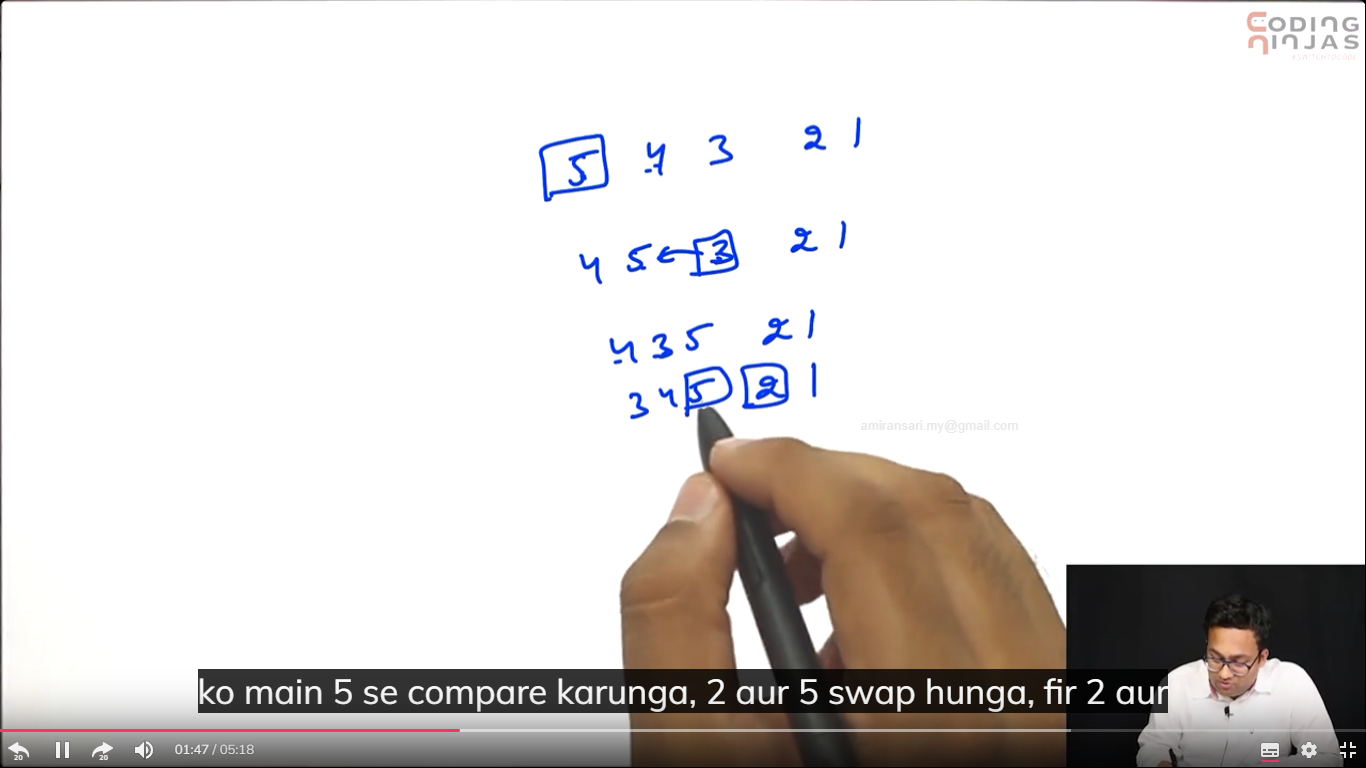 CODING
NINJAS
#SWITCHTOCODE
5 4 3 2 1
4 5 3 2 1
4 3 5 2 1
3 4 5 2 1
amiransari.my@gmail.com
ko main 5 se compare karunga, 2 aur 5 swap hunga, fir 2 aur
20 20 01:47 / 05:18